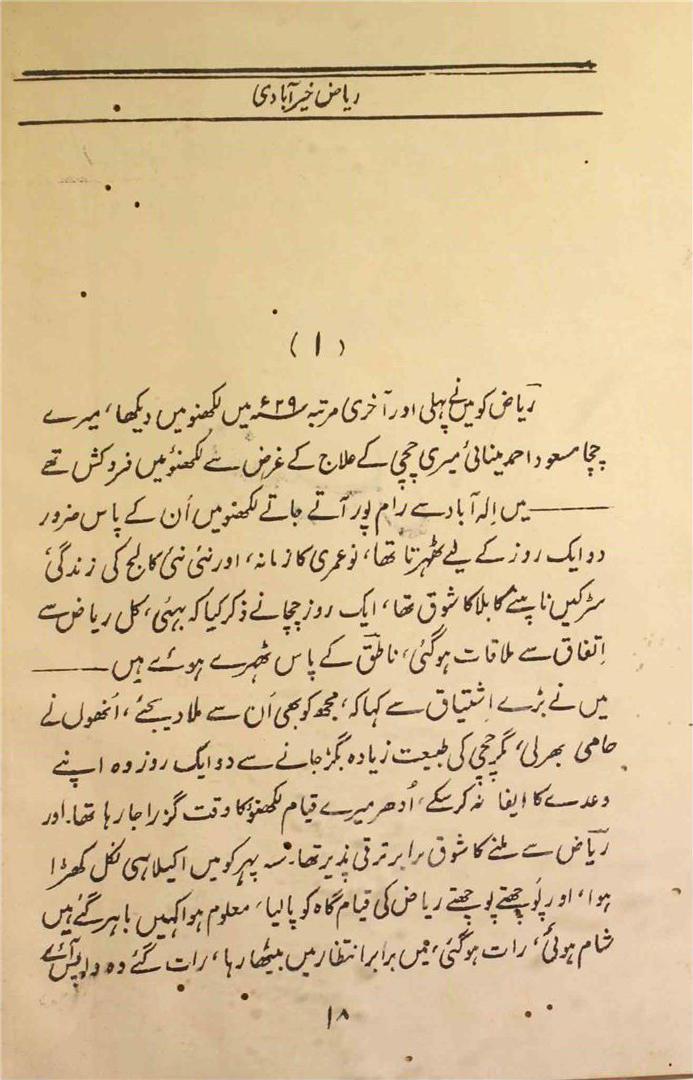 ریاض خیرآبادی
(۱)
ریاؔض کو میں نے پہلی اور آخری مرتبہ ۲۹ء میں لکھنو میں دیکھا، میرے
چچا مسعود احمد مینائی میری چچی کے علاج کے غرض سے لکھنؤ میں فروکش تھے
——— میں اِلہ آباد سے رام پور آتے جاتے لکھنو میں اُن کے پاس ضرور
دو ایک روز کے لیے ٹھہرتا تھا، نو عمری کا زمانہ، اور نئی نئی کالج کی زندگی،
سڑکیں ناپنے کا بلا کا شوق تھا، ایک روز چچا نے ذکر کیا کہ بھئی، کل ریاض سے
اِتفاق سے ملاقات ہوگئی، ناطؔق کے پاس ٹھہرے ہوئے ہیں ———
میں نے بڑے اِشتیاق سے کہا کہ، مجھ کو بھی اُن سے ملا دیجئے، اُنھوں نے
حامی بھرلی، مگر چچی کی طبیعت زیادہ بگڑ جانے سے دو ایک روز وہ اپنے
وعدے کا ایفا نہ کرسکے، اُدھر میرے قیام لکھنؤ کا وقت گزرا جا رہا تھا۔ اور
ریاؔض سے ملنے کا شوق برابر ترقی پذیر تھا۔ سہ پہر کو میں اکیلا ہی نکل کھڑا
ہوا، اور پُوچھتے پوچھتے ریاض کی قیام گاہ کو پالیا، معلوم ہوا کہیں باہر گئے ہیں
شام ہوئی، رات ہوگئی، میں برابر انتظار میں بیٹھا رہا، رات گئے وہ واپس آئے
۱۸